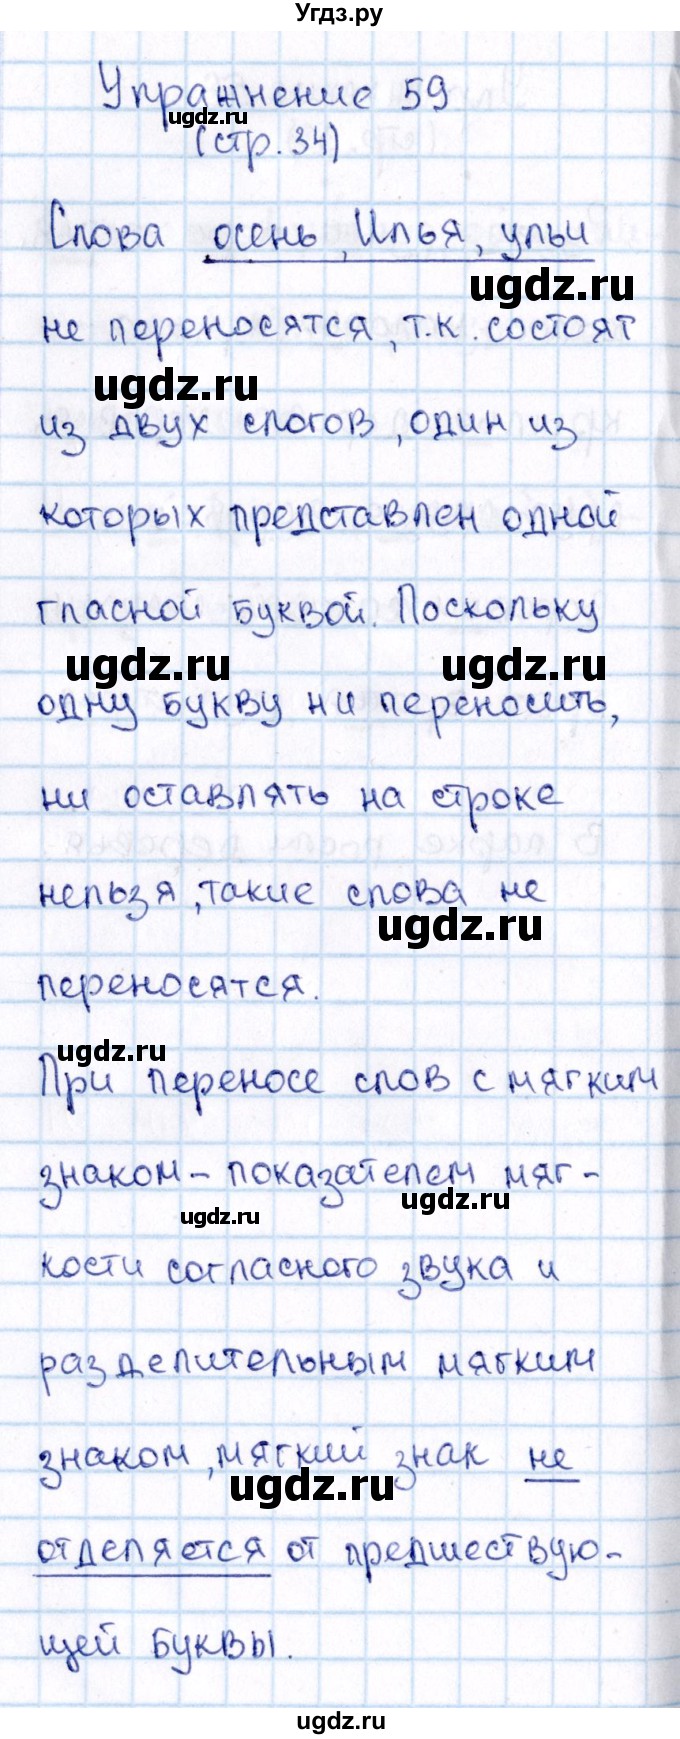 Угдз.ру
Упражнение 59
ugdz.ru
(стр.34)
Слова осень, Илья, ульи
ugdz.ru
не переносятся, т.к. состоят
ugdz.ru
из двух слогов, один из
которых представлен одной
гласной буквой. Поскольку
ugdz.ru ugdz.ru
одну букву ни переносить,
ни оставлять на строке
нельзя, такие слова не
ugdz.ru
переносятся.
ugdz.ru
При переносе слов с мягким
знаком-показателем мяг-
ugdz.ru
ugdz.ru
кости согласного звука и
разделительным мягким
знаком, мягкий знак не
ugdz.ru
отделяется от предшествую-
щей буквы.
ugdz.ru